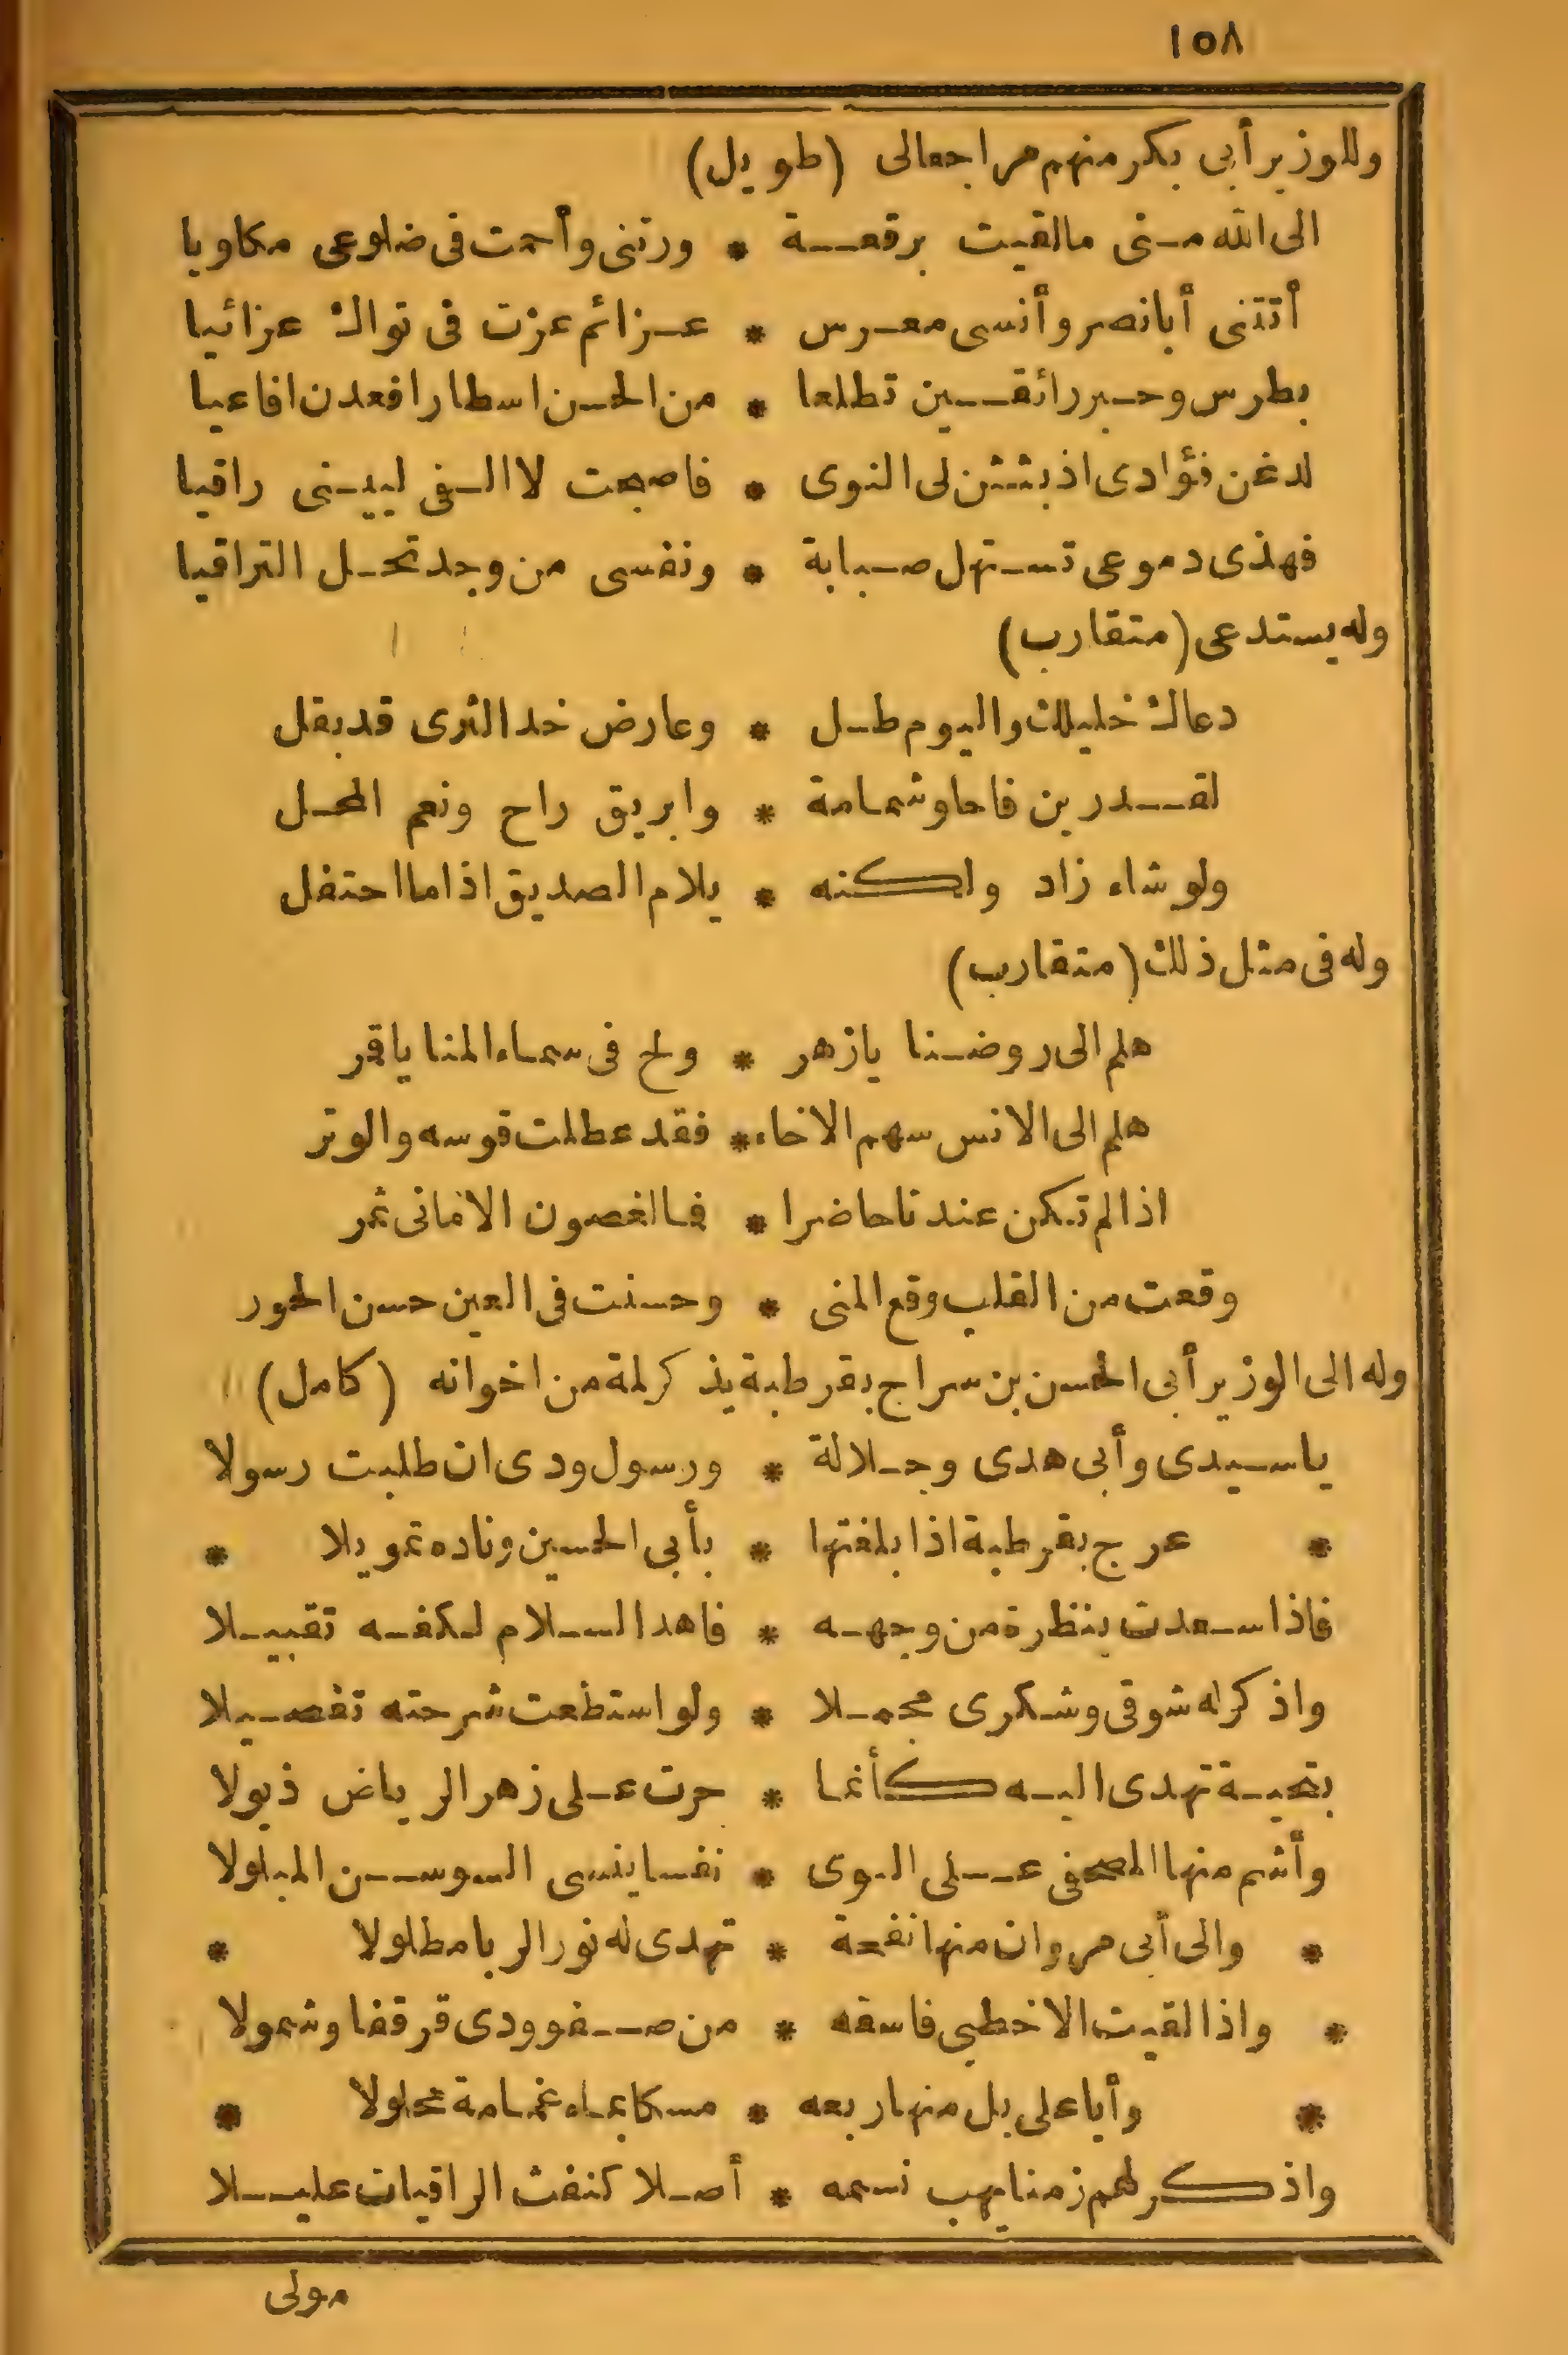 ١٥٨
وللوزير أبي بكر منهم مراجعالى (طويل)
الى الله منى مالقيت برقعة * ورتنى وأحمت فى ضلوعى مكاويا
أتتنى أبا نصر وأنسى معرس * عزائم عزت فى نواك عزائيا
بطرس وحبر رائقين تطلعا * من الحسن اسطارا فعدن افاعيا
لدغن فؤادى اذ بثثن لى النوى * فاصبحت لا الفى لبينى راقيا
فهذى دموعى تستهل صبابة * ونفسى من وجد تحل التراقيا
وله يستدعى (متقارب)
دعاك خليلك واليوم طل * وعارض خد الثرى قد بقل
لقدرين فاحا وشمامة * وابريق راح ونعم المحل
ولو شاء زاد ولكنه * يلام الصديق اذا ما احتفل
وله فى مثل ذلك (متقارب)
هلم الى روضنا يازهر * ولح فى سماء المنا ياقمر
هلم الى الانس سهم الاخاء * فقد عطلت قوسه والوتر
اذا لم تكن عندنا حاضرا * فما لغصون الامانى ثمر
وقعت من القلب وقع المنى * وحسنت فى العين حسن الحور
وله الى الوزير أبى الحسن بن سراج بقرطبة يذكر لمة من اخوانه (كامل)
ياسيدى وأبى هدى وجلالة * ورسول ودى ان طلبت رسولا
* عرج بقرطبة اذا بلغتها * بأبى الحسين وناده تمويلا *
فاذا سعدت بنظرة من وجهه * فاهد السلام لكفه تقبيلا
واذكر له شوقى وشكرى مجملا * ولو استطعت شرحته تفصيلا
بتحية تهدى اليه كأنما * جرت على زهر الرياض ذيولا
وأشم منها المصحفى على النوى * نفسا ينسى السوسن المبلولا
* والى أبى مروان منها نفحة * تهدى له نور الربا مطلولا *
* واذا لقيت الاخطبى فاسقه * من صفو ودى قرقفا وشمولا
* وأبا على بل منها ربعه * مسكا بماء غمامة محلولا *
واذكر لهم زمنا يهب نسيمه * أصلا كنفث الراقيات عليلا
مولى